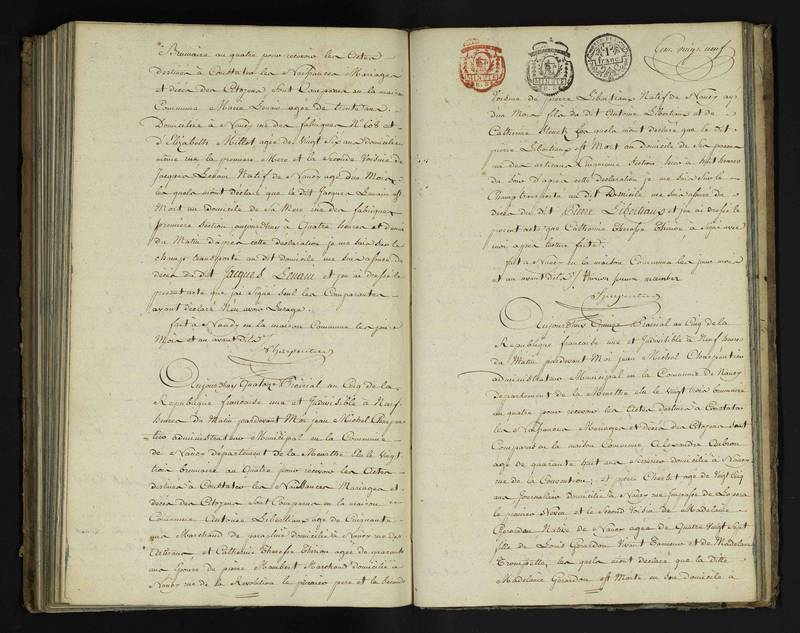 Brumaire an quatre pour recevoir les Actes
destinés à Constater les Naissances Mariages
et décès des Citoyens Sont Comparus en la maison
Commune Marie Lenain agée de trente ans
Domiciliée à Nancy rue des fabriques N.º 68 et
d'Elizabeth Millot agée de Vingt Six ans Domiciliée
même rue la premiere Mere et la Seconde Voisine de
Jacques Lenain Natif de Nancy agé d'un Mois
les quels m'ont déclaré que le dit Jacques Lenain est
Mort au domicile de Sa Mere rue des fabriques
premiere Section aujourd'huy à Quatre heures et demie
du Matin d'après cette déclaration je me suis sur le
champ transporté au dit domicile me suis assuré du
décès du dit Jacques Lenain et j'en ai dressé le
present acte que j'ai Signé seul les Comparantes
ayant declaré N'en avoir l'usage.
fait à Nancy en la maison Commune les jour
Mois et an avant dits
Charpentier
Aujourd'huy Quatorze Prairial an Cinq de la
Republique française une et Indivisible à Neuf
heures du Matin pardevant Moi jean Michel Charpen
tier administrateur Municipal en la Commune
de Nancy departement de la Meurthe élu le Vingt
trois Brumaire an Quatre pour recevoir les Actes
destinés à Constater les Naissances Mariages et
décès des Citoyens Sont Comparus en la maison
Commune Antoine Libertiaux agé de Cinquante
ans Marchand de parapluie domicilié à Nancy rue des
Artisans, et Catherine Therese Thirion agée de quarante
ans Epouse de pierre Mambert Marchand domiciliée à
Nancy rue de la Revolution le premier pere et la Seconde
Cent vingt neuf
1 franc
Voisine de pierre Libertiaux Natif de Nancy agé
d'un Mois fils du dit Antoine Libertiaux et de
Catherine les quels m'ont déclaré que le dit
pierre Libertiaux est Mort au domicile de Son pere
rue des artisans Cinquieme Section hier à huit heures
du Soir d'après cette déclaration je me suis sur le
Champ transporté au dit Domicile me suis assuré du
décès du dit Pierre Libertiaux et j'en ai dressé le
present acte que Catherine Therese Thirion à Signé avec
moi après lecture faite.
fait à Nancy en la maison Commune les jour mois
et an avant dits. thirion femme mambert
Charpentier
Aujourd'huy Quinze Prairial an Cinq de la
Republique française une et Indivisible à Neuf heures
du Matin pardevant Moi jean Michel Charpentier
administrateur Municipal en la Commune de Nancy
departement de la Meurthe élu le Vingt trois Brumaire
an quatre pour recevoir les Actes destinés à Constater
les Naissances Mariages et décès des Citoyens Sont
Comparus en la maison Commune Alexandre
agé de quarante huit ans domicilié à Nancy
rue de la Convention; et pierre Charlet agé de Vingt Cinq
ans journalier domicilié à Nancy rue
le premier Neveu et le Second Voisin de Madelaine
Gerardon Native de Nancy agée de Quatre Vingt Sept
fille de Louis Gerardon Vivant et de Madelaine
Trompette, les quels m'ont déclaré que la ditte
Madelaine Gerardon est Morte en son domicile à